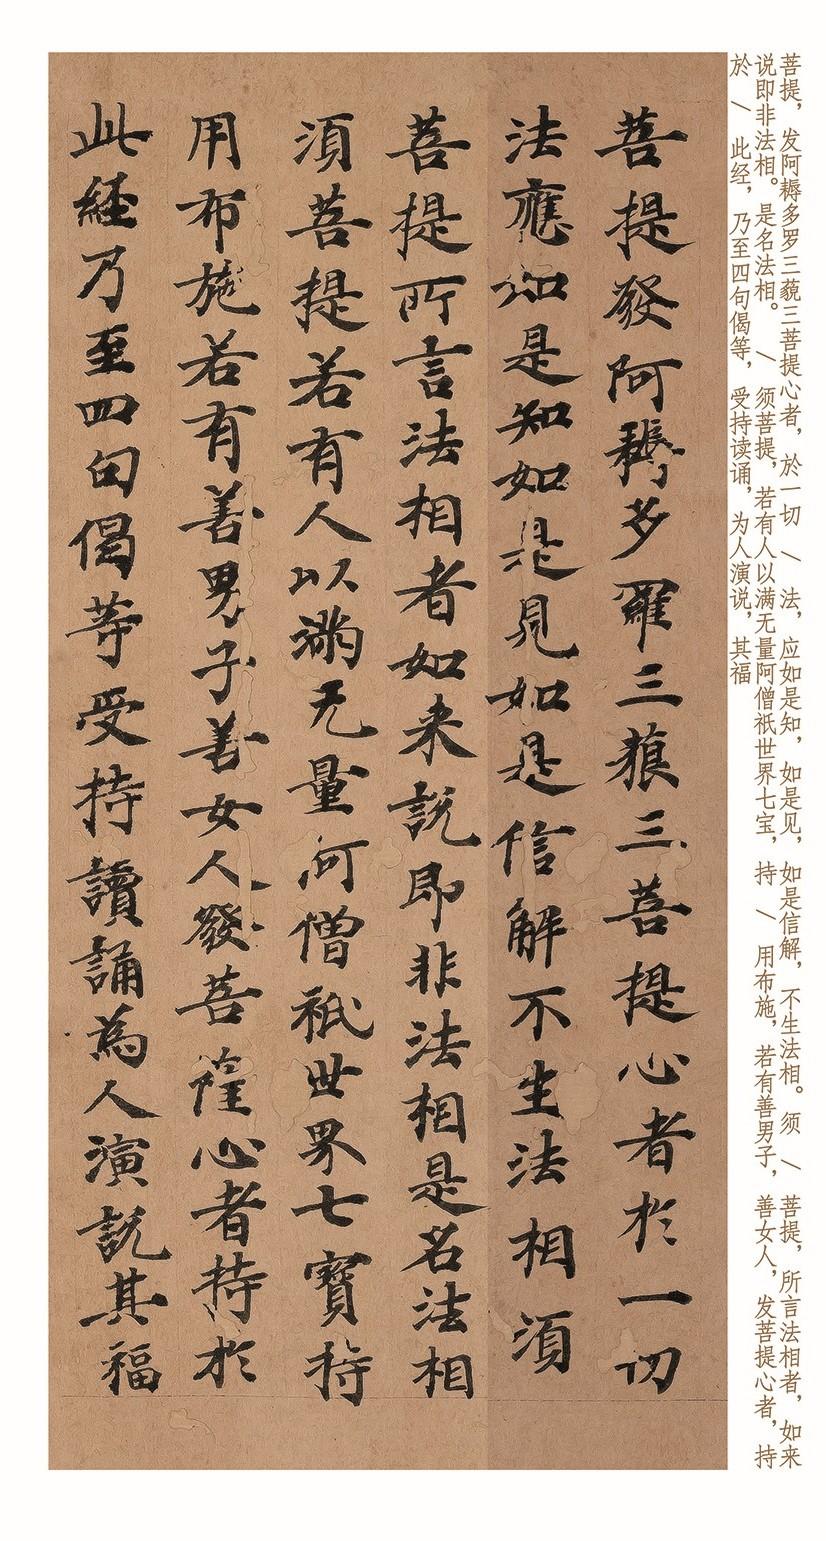 菩提，发阿耨多罗三藐三菩提心者，於一切\法，应如是知，如是见，如是信解，不生法相。须\菩提，所言法相者，如来
说即非法相。是名法相。\须菩提，若有人以满无量阿僧祇世界七宝，持\用布施，若有善男子，善女人，发菩提心者，持
於\此经，乃至四句偈等，受持读诵，为人演说，其福
菩提發阿耨多羅三藐三菩提心者於一切
法應如是知如是見如是信解不生法相須
菩提所言法相者如来說即非法相是名法相
須菩提若有人以滿无量阿僧祇世界七寶持
用布施若有善男子善女人發菩薩心者持於
此経乃至四句偈等受持讀誦為人演說其福